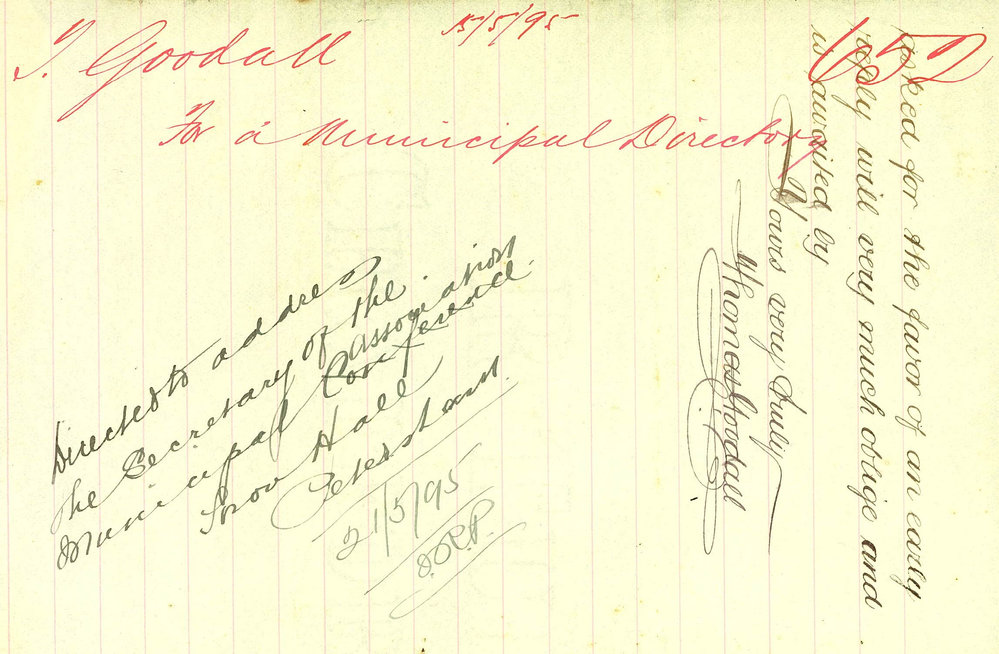 T. Goodall 15/5/95
652
For a Municipal Directory
asked for the favor of an early
reply will very much oblige and
is awaited by
Yours very truly
Thomas Goodall
Directed to address
The Secretary of the
Association
Municipal Conference.
Town Hall
Petersham.
21/5/95